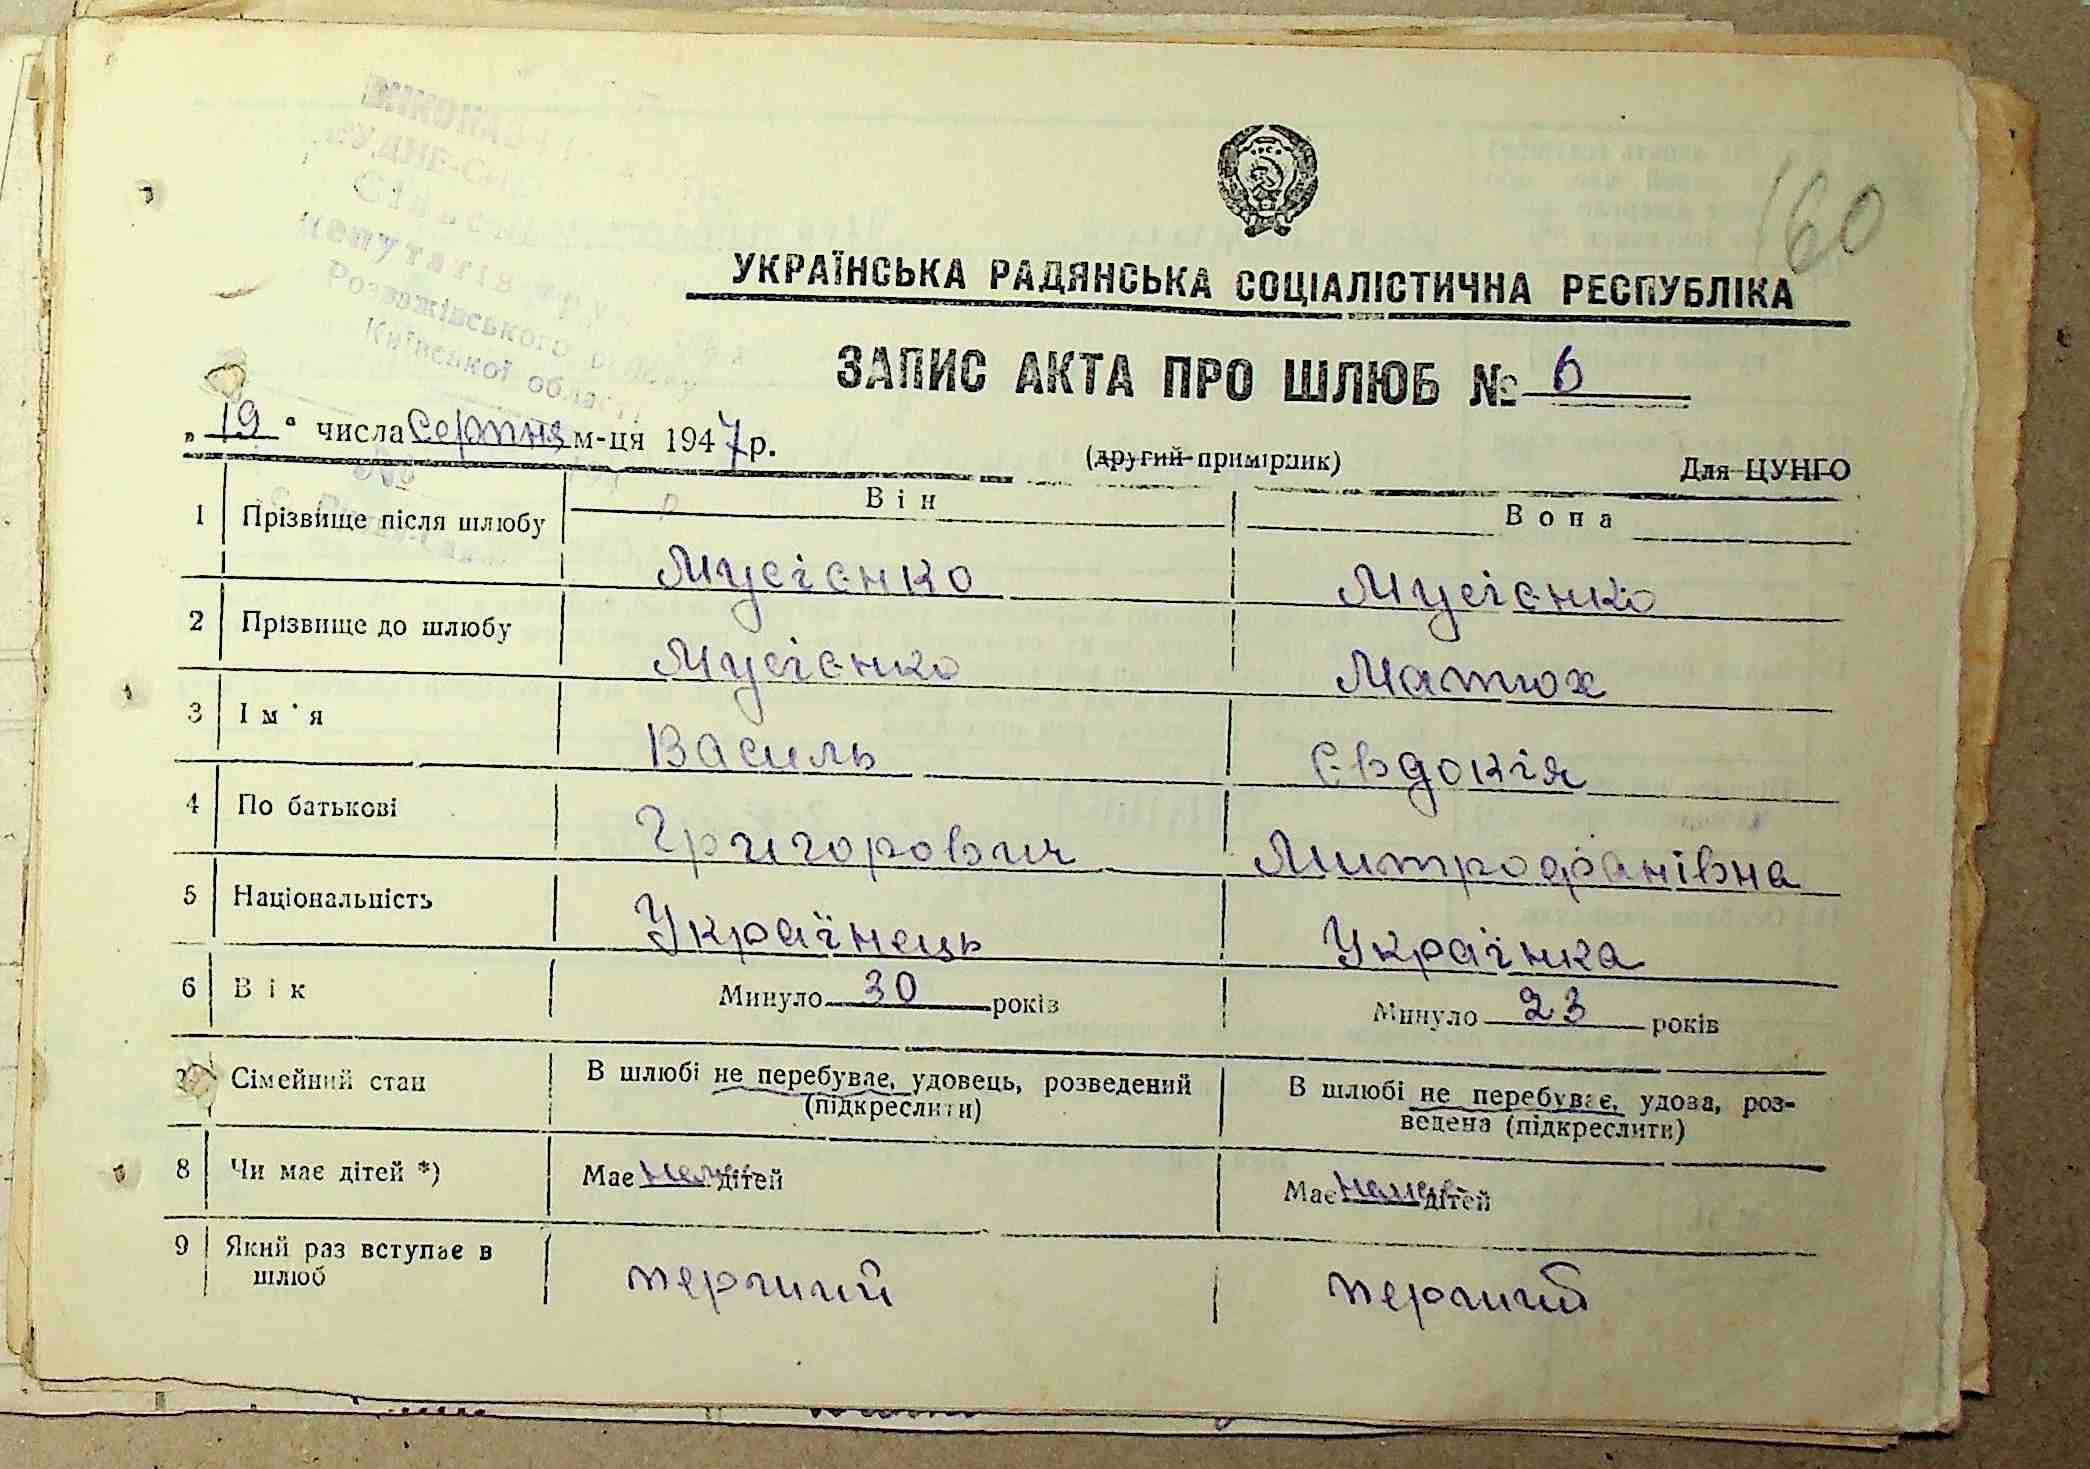 160
УКРАЇНСЬКА РАДЯНСЬКА СОЦІАЛІСТИЧНА РЕСПУБЛІКА
ЗАПИС АКТА ПРО ШЛЮБ № 6
„ 19 “ числа серпня м-ця 1947 р.
(другий примірник)
Для ЦУНГО
Він Вона
1 Прізвище після шлюбу Мусієнко Мусієнко
2 Прізвище до шлюбу Мусієнко Матюх
3 Ім'я Василь Євдокія
4 По батькові Григорович Митрофанівна
5 Національність Українець Українка
6 Вік Минуло 30 років Минуло 23 років
Сімейний стан В шлюбі не перебуває, удовець, розведений (підкреслити) В шлюбі не перебуває, удова, роз-
ведена (підкреслити)
8 Чи має дітей *) Має немає дітей Має немає дітей
9 Який раз вступає в
шлюб перший перший
депутатів
Розважівського району
Київської області